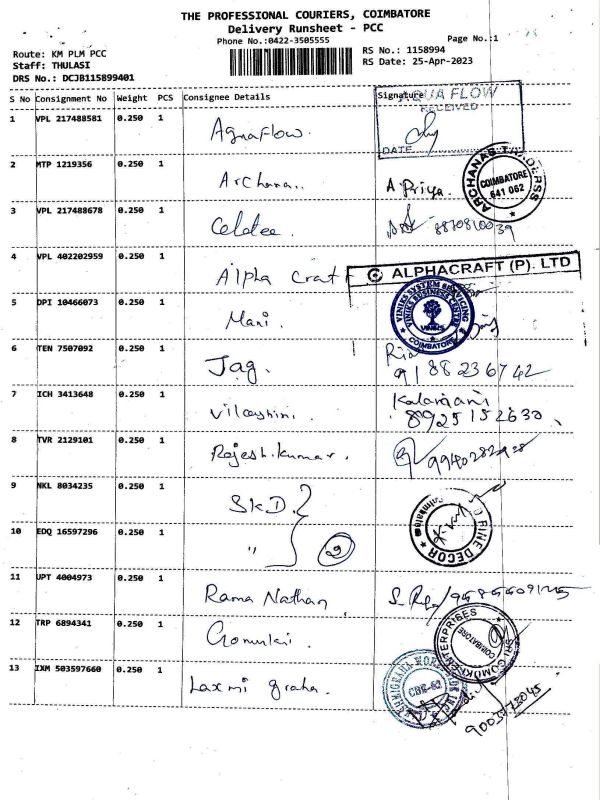 THE PROFESSIONAL COURIERS, COIMBATORE
Delivery Runsheet - PCC
Phone No.:0422-3505555
Page No.:1
Route: KM PLM PCC
Staff: THULASI
DRS No.: DCJB115899401
RS No.: 1158994
RS Date: 25-Apr-2023
S No Consignment No Weight PCS Consignee Details Signature
AQUA FLOW
RECEIVED
DATE
1 VPL 217488581 0.250 1 Aquaflow.
2 MTP 1219356 0.250 1 Archana.. A Priya.
ARCHANAS TRADERSS
COIMBATORE
641 062
3 VPL 217488678 0.250 1 Celetee.
4 VPL 402202959 0.250 1 Alpha Craft
ALPHACRAFT (P). LTD
5 DPI 10466073 0.250 1 Mani.
VINIKS SYSTEM SERVICING
VINIKS BUSINESS CENTRE
VINIKS
COIMBATORE
6 TEN 7507092 0.250 1 Jag.
9188236742
7 ICH 3413648 0.250 1
8925152630
8 TVR 2129101 0.250 1 Rajesh.kumar.
9 NKL 8034235 0.250 1 SKD.
10 EDQ 16597296 0.250 1 "
2
DECOR
11 UPT 4004973 0.250 1 Rama Nathan
12 TRP 6894341 0.250 1
ENTERPRISES
COIMBATORE
13 IXM 503597660 0.250 1 Laxmi graha.
CBE-69